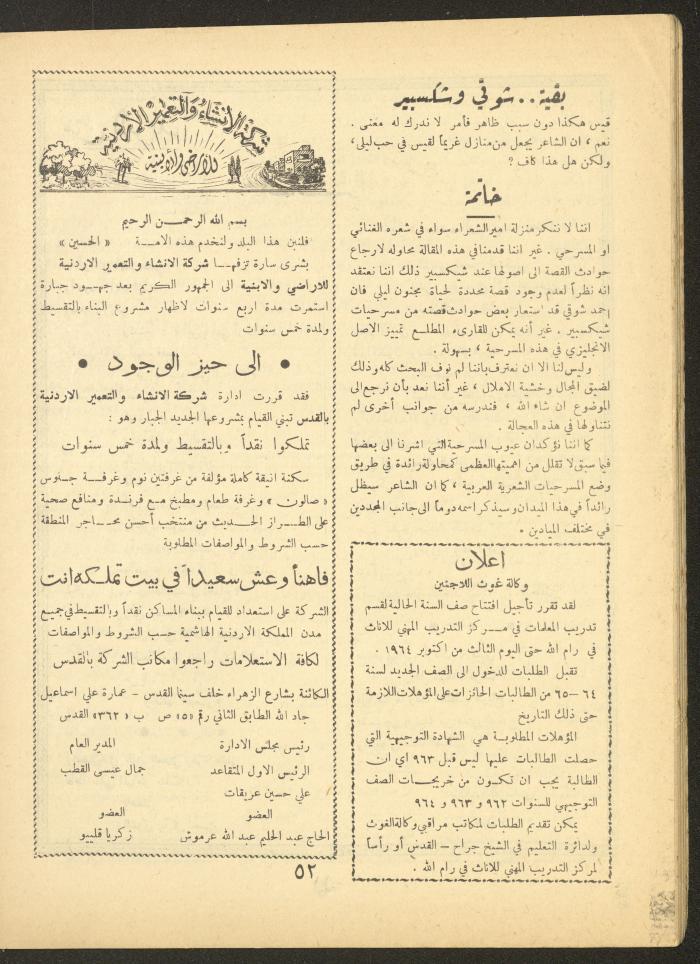 بقية .. شوقي وشكسبير
قيس هكذا دون سبب ظاهر فأمر لا ندرك له معنى .
نعم ، ان الشاعر يجعل من منازل غريماً لقيس في حب ليلى ,
ولكن هل هذا كاف ؟
خاتمة
اننا لا ننكر منزلة امير الشعراء سواء في شعره الغنائي
او المسرحي . غير اننا قدمنا في هذه المقالة محاولة لارجاع
حوادث القصة الى اصولها عند شيكسبير ذلك اننا نعتقد
انه نظراً لعدم وجود قصة محددة لحياة مجنون ليلى فان
احمد شوقي قد استعار بعض حوادث قصته من مسرحيات
شيكسبير . غير أنه يمكن للقارىء المطلع تمييز الاصل
الانجليزي في هذه المسرحية ، بسهولة .
وليس لنا الا ان نعترف باننا لم نوف البحث كله وذلك
لضيق المجال وخشية الاملال ، غير أننا نعد بأن نرجع الى
الموضوع ان شاء الله ، فندرسه من جوانب أخرى لم
نتناولها في هذه العجالة .
كما اننا نؤكد ان عيوب المسرحية التي اشرنا الى بعضها
فيما سبق لا تقلل من اهميتها العظمى كمحاولة رائدة في طريق
وضع المسرحيات الشعرية العربية ، كما ان الشاعر سيظل
رائداً في هذا الميدان وسيذكر اسمه دوماً الى جانب المجددين
في مختلف الميادين .
اعلان
وكالة غوث اللاجئين
لقد تقرر تأجيل افتتاح صف السنة الحالية لقسم
تدريب المعلمات في مركز التدريب المهني للاناث
في رام الله حتى اليوم الثالث من اكتوبر ١٩٦٤ .
تقبل الطلبات للدخول الى الصف الجديد لسنة
٦٤-٦٥ من الطالبات الحائزات على المؤهلات اللازمة
حتى ذلك التاريخ
المؤهلات المطلوبة هي الشهادة التوجيهية التي
حصلت الطالبات عليها ليس قبل ٩٦٣ اي ان
الطالبة يجب ان تكون من خريجات الصف
التوجيهي للسنوات ٩٦٢ و ٩٦٣ و ٩٦٤
يمكن تقديم الطلبات لمكاتب مراقبي وكالة الغوث
ولدائرة التعليم في الشيخ جراح - القدس أو رأساً
لمركز التدريب المهني للاناث في رام الله .
شركة الانشاء والتعمير الاردنية
للاراضي والابنية
بسم الله الرحمن الرحيم
فلنبن هذا البلد ولنخدم هذه الامة « الحسين »
بشرى سارة تزفها شركة الانشاء والتعمير الاردنية
للاراضي والابنية الى الجمهور الكريم بعد جهود جبارة
استمرت مدة اربع سنوات لاظهار مشروع البناء بالتقسيط
ولمدة خمس سنوات
• الى حيز الوجود •
فقد قررت ادارة شركة الانشاء والتعمير الاردنية
بالقدس تبني القيام بمشروعها الجديد الجبار وهو :
تملكوا نقداً وبالتقسيط ولمدة خمس سنوات
سكنة انيقة كاملة مؤلفة من غرفتين نوم وغرفة جلوس
« صالون » وغرفة طعام ومطبخ مع فرندة ومنافع صحية
على الطراز الحديث من منتخب أحسن محاجر المنطقة
حسب الشروط والمواصفات المطلوبة
فاهنأ وعش سعيداً في بيت تملكه انت
الشركة على استعداد للقيام ببناء المساكن نقداً وبالتقسيط في جميع
مدن المملكة الاردنية الهاشمية حسب الشروط والمواصفات
لكافة الاستعلامات راجعوا مكاتب الشركة بالقدس
الكائنة بشارع الزهراء خلف سينما القدس - عمارة علي اسماعيل
جاد الله الطابق الثاني رقم «٥» ص ب «٣٦٢» القدس
رئيس مجلس الادارة المدير العام
الرئيس الاول المتقاعد جمال عيسى القطب
علي حسين عريقات
العضو العضو
الحاج عبد الحليم عبد الله عرموش زكريا قليبو
٥٢